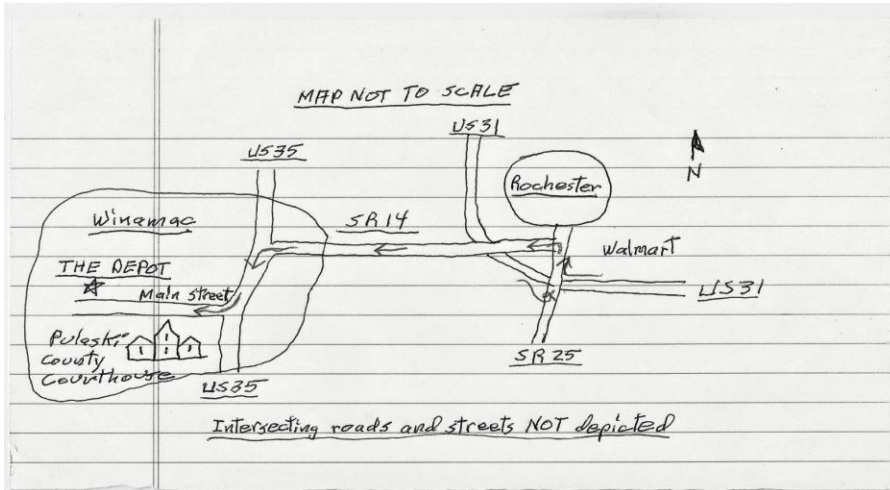 MAP NOT TO SCALE
US31
US35
N
Rochester
Winamac
SR14
Walmart
THE DEPOT
Main street
US31
Pulaski
County
Courthouse
SR25
US35
Intersecting roads and streets NOT depicted